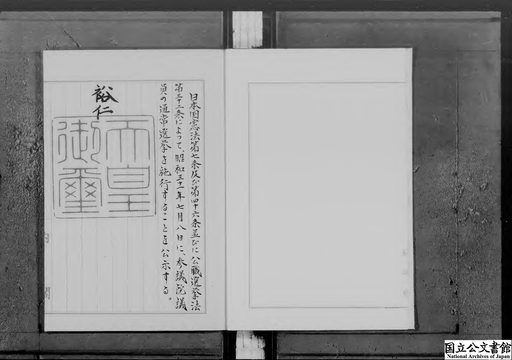 日本国憲法第七条及び第四十六条並びに公職選挙法
第三十二条によつて、昭和三十一年七月八日に、参議院議
員の通常選挙を施行することを公示する。
裕仁
天皇
御璽
内閣
国立公文書館
National Archives of Japan